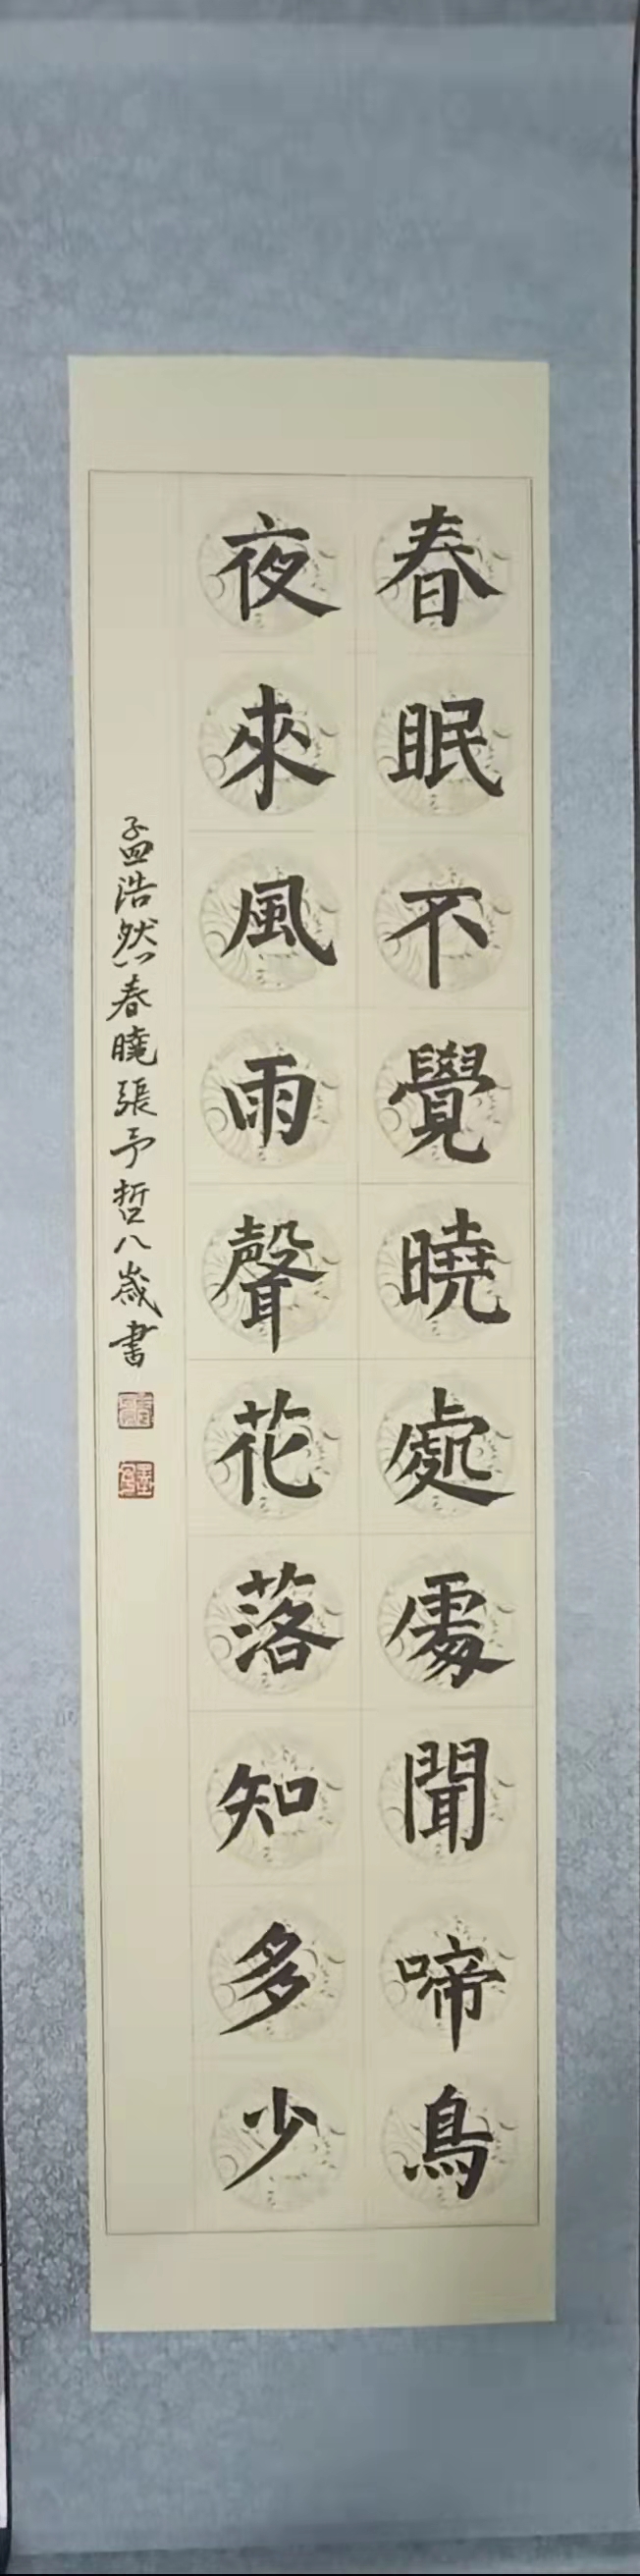 春眠不覺曉處處聞啼鳥
夜來風雨聲花落知多少
孟浩然春曉張予哲八歲書